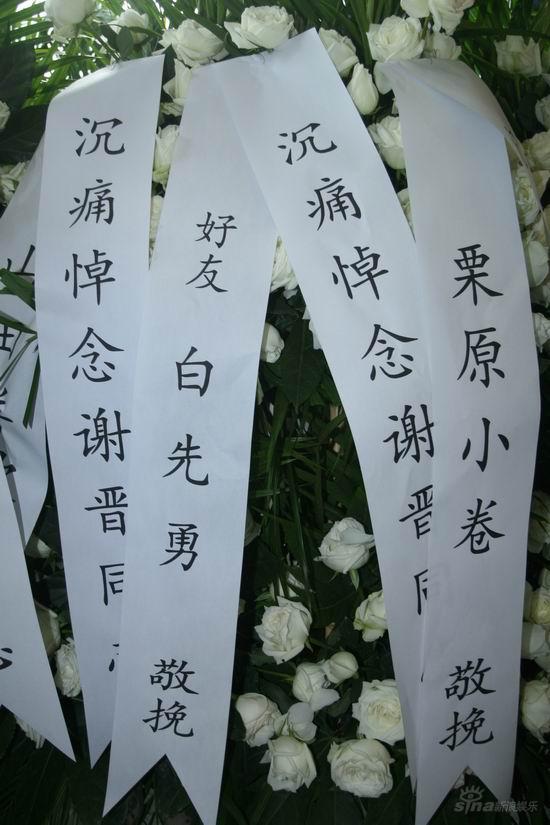 沉痛悼念谢晋同志
好友
白先勇
敬挽
沉痛悼念谢晋同
栗原小卷
敬挽
sina新浪娱乐